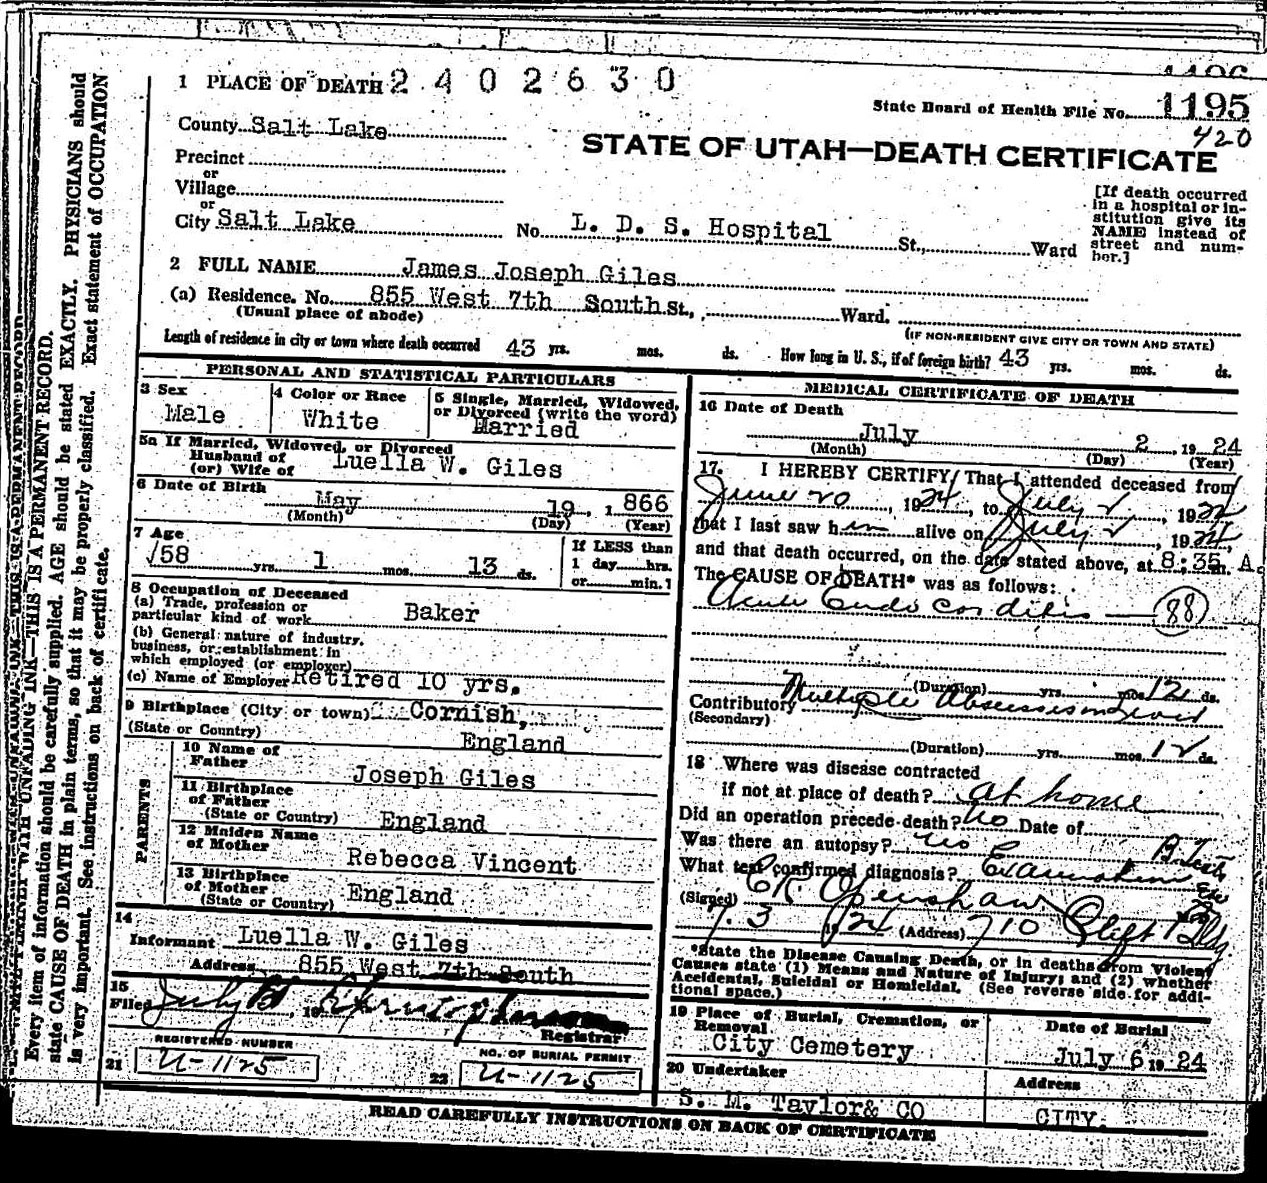 1 PLACE OF DEATH 2402630
State Board of Health File No. 1195
420
County Salt Lake
STATE OF UTAH—DEATH CERTIFICATE
Precinct
or
Village
or
City Salt Lake No. L. D. S. Hospital St., Ward
[If death occurred in a hospital or institution give its NAME instead of street and number.]
2 FULL NAME James Joseph Giles
(a) Residence. No. 855 West 7th South St., Ward.
(Usual place of abode) (IF NON-RESIDENT GIVE CITY OR TOWN AND STATE)
Length of residence in city or town where death occurred 43 yrs. mos. ds. How long in U. S., if of foreign birth? 43 yrs. mos. ds.
PERSONAL AND STATISTICAL PARTICULARS
3 Sex Male
4 Color or Race White
5 Single, Married, Widowed, or Divorced (write the word) Married
5a If Married, Widowed, or Divorced
Husband of
(or) Wife of Luella W. Giles
6 Date of Birth May 19, 1866
(Month) (Day) (Year)
7 Age
58 yrs. 1 mos. 13 ds.
If LESS than
1 day hrs.
or min.]
8 Occupation of Deceased
(a) Trade, profession or
particular kind of work Baker
(b) General nature of industry,
business, or establishment in
which employed (or employer)
(c) Name of Employer Retired 10 yrs.
9 Birthplace (City or town) Cornish,
(State or Country) England
PARENTS
10 Name of Father Joseph Giles
11 Birthplace of Father
(State or Country) England
12 Maiden Name of Mother Rebecca Vincent
13 Birthplace of Mother
(State or Country) England
14
Informant Luella W. Giles
Address 855 West 7th South
15
Filed July
Registrar
REGISTERED NUMBER
21 U-1125
NO. OF BURIAL PERMIT
22 U-1125
MEDICAL CERTIFICATE OF DEATH
16 Date of Death
July 2, 1924
(Month) (Day) (Year)
17. I HEREBY CERTIFY, That I attended deceased from
June 20, 1924, to July 2, 1924
that I last saw him alive on July 2, 1924,
and that death occurred, on the date stated above, at 8:35 m. A.
The CAUSE OF DEATH* was as follows:
Acute Endocarditis (88)
(Duration) yrs. mos. 12 ds.
Contributory Multiple Abscesses in Liver
(Secondary)
(Duration) yrs. mos. 12 ds.
18 Where was disease contracted
if not at place of death? at home
Did an operation precede death? No Date of
Was there an autopsy? No
What test confirmed diagnosis? Examination
(Signed) Openshaw
7. 3 1924 (Address) 710 Clift Bldg.
*State the Disease Causing Death, or in deaths from Violent
Causes state (1) Means and Nature of Injury; and (2) whether
Accidental, Suicidal or Homicidal. (See reverse side for additional space.)
19 Place of Burial, Cremation, or Removal
City Cemetery
Date of Burial
July 6 1924
20 Undertaker
S. M. Taylor & CO
Address
CITY.
READ CAREFULLY INSTRUCTIONS ON BACK OF CERTIFICATE
WITH UNFADING INK—THIS IS A PERMANENT RECORD.
Every item of information should be carefully supplied. AGE should be stated EXACTLY. PHYSICIANS should
state CAUSE OF DEATH in plain terms, so that it may be properly classified. Exact statement of OCCUPATION
is very important. See instructions on back of certificate.